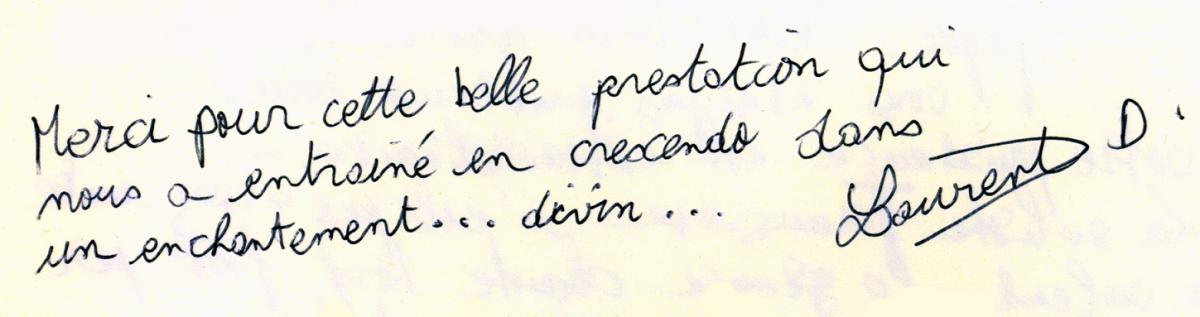 Merci pour cette belle prestation qui
nous a entrainé en crescendo dans
un enchantement... divin...
Laurent D.